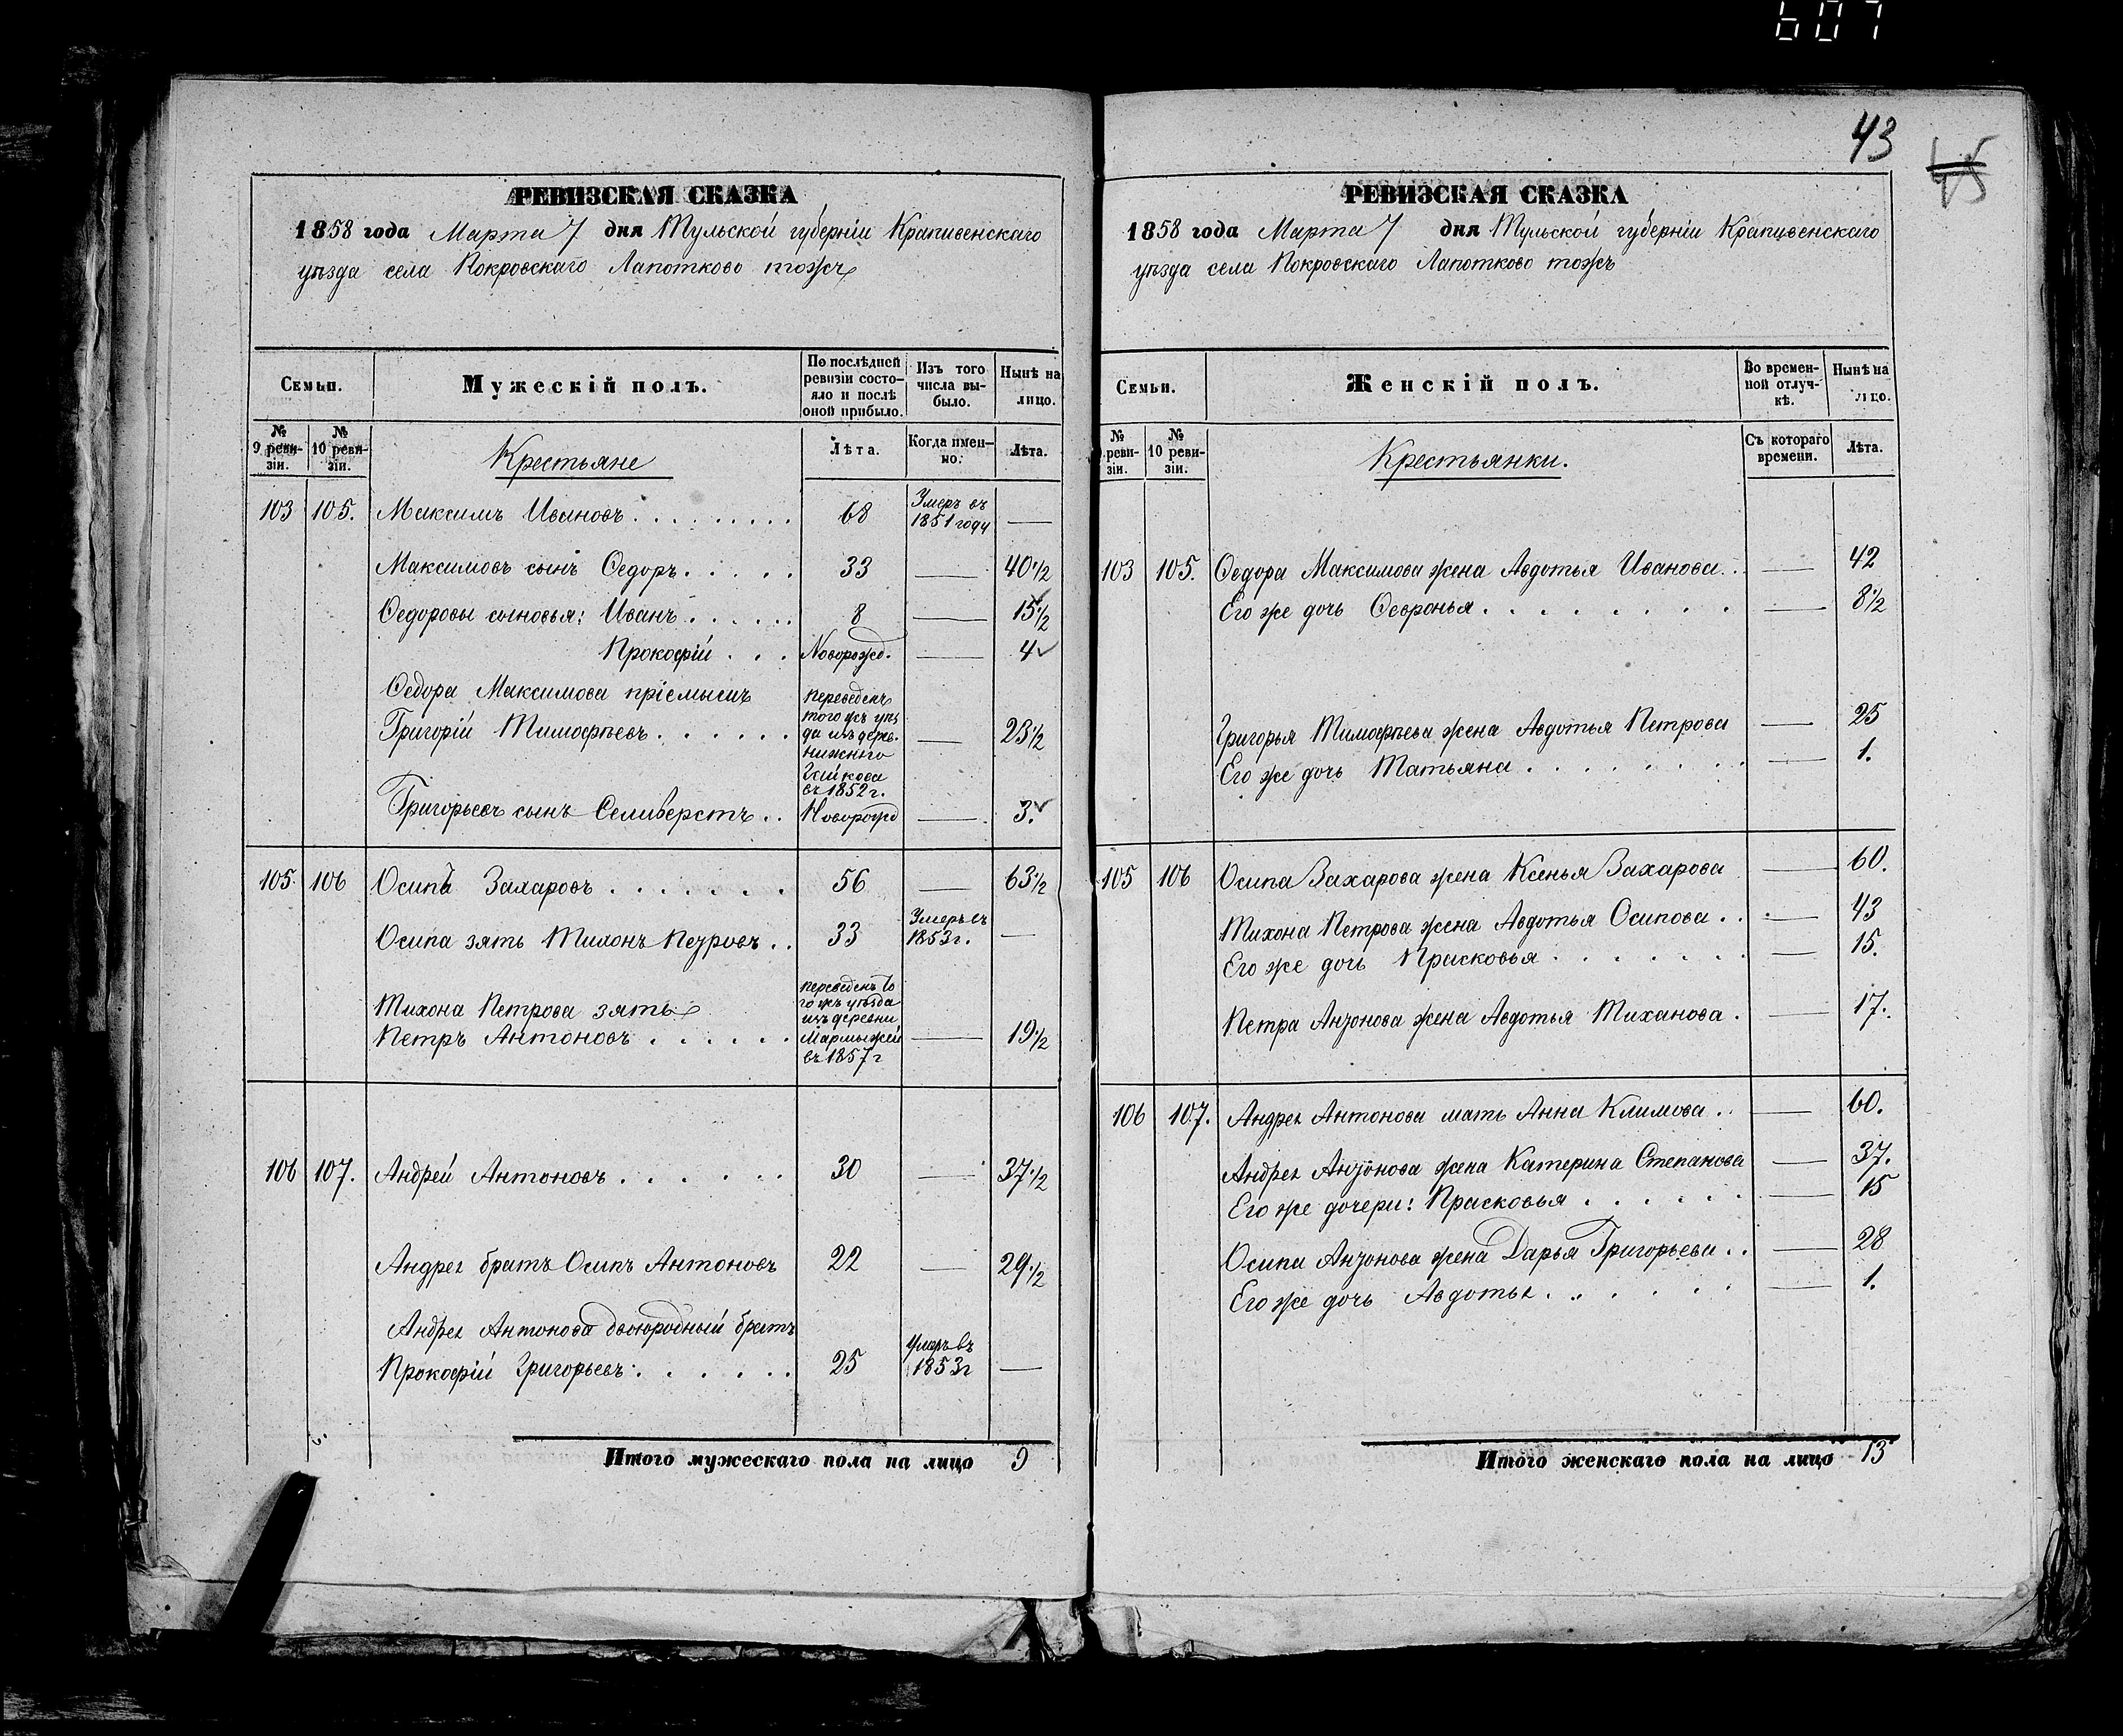 607
43
45
РЕВИЗСКАЯ СКАЗКА
1858 года Марта 7 дня Тульской губерніи Крапивенскаго
уѣзда села Покровскаго Лапотково тожъ
Семьи.
Мужескій полъ.
По послѣдней ревизіи состо-
яло и послѣ оной прибыло.
Изъ того числа вы-
было.
Нынѣ на лицо.
№ 9 реви-
зіи.
№ 10 реви-
зіи.
Крестьяне
Лѣта.
Когда имен-
но.
Лѣта.
103 105. Максимъ Ивановъ 68 Умеръ въ 1851 году —
Максимовъ сынъ Ѳедоръ 33 — 40 1/2
Ѳедоровы сыновья: Иванъ 8 — 15 1/2
Прокофій Новорожд. — 4
Ѳедора Максимова пріемышъ
Григорій Тимофѣевъ
переведенъ
тогожъ уѣз
да изъ дерев.
нижнего
въ 1852 г.
— 23 1/2
Григорьевъ сынъ Селиверстъ Новорожд — 3.
105 106 Осипъ Захаровъ 56 — 63 1/2
Осипа зять Тихонъ Петровъ 33 Умеръ въ 1853 г. —
Тихона Петрова зять
Петръ Антоновъ
переведенъ то
гожъ уѣзда
изъ деревни
въ 1857 г
— 19 1/2
106 107. Андрей Антоновъ 30 — 37 1/2
Андрея братъ Осипъ Антоновъ 22 — 29 1/2
Андрея Антонова двоюродный братъ
Прокофій Григорьевъ 25 Умеръ въ 1853 г —
Итого мужескаго пола на лицо 9
РЕВИЗСКАЯ СКАЗКА
1858 года Марта 7 дня Тульской губерніи Крапивенскаго
уѣзда села Покровскаго Лапотково тожъ
Семьи.
Женскій полъ.
Во времен-
ной отлуч-
кѣ.
Нынѣ на лицо.
№ реви-
зіи.
№ 10 реви-
зіи.
Крестьянки.
Съ котораго времени.
Лѣта.
103 105. Ѳедора Максимова жена Авдотья Иванова — 42
Его же дочь Ѳевронья — 8 1/2
Григорья Тимофѣева жена Авдотья Петрова — 25
Его же дочь Татьяна — 1.
105 106 Осипа Захарова жена Ксенья Захарова — 60.
Тихона Петрова жена Авдотья Осипова — 43
Его же дочь Прасковья — 15.
Петра Антонова жена Авдотья Тиханова — 17.
106 107. Андрея Антонова мать Анна Климова — 60.
Андрея Антонова жена Катерина Степанова — 37.
Его же дочери: Прасковья — 15
Осипа Антонова жена Дарья Григорьева — 28
Его же дочь Авдотья — 1.
Итого женскаго пола на лицо 13